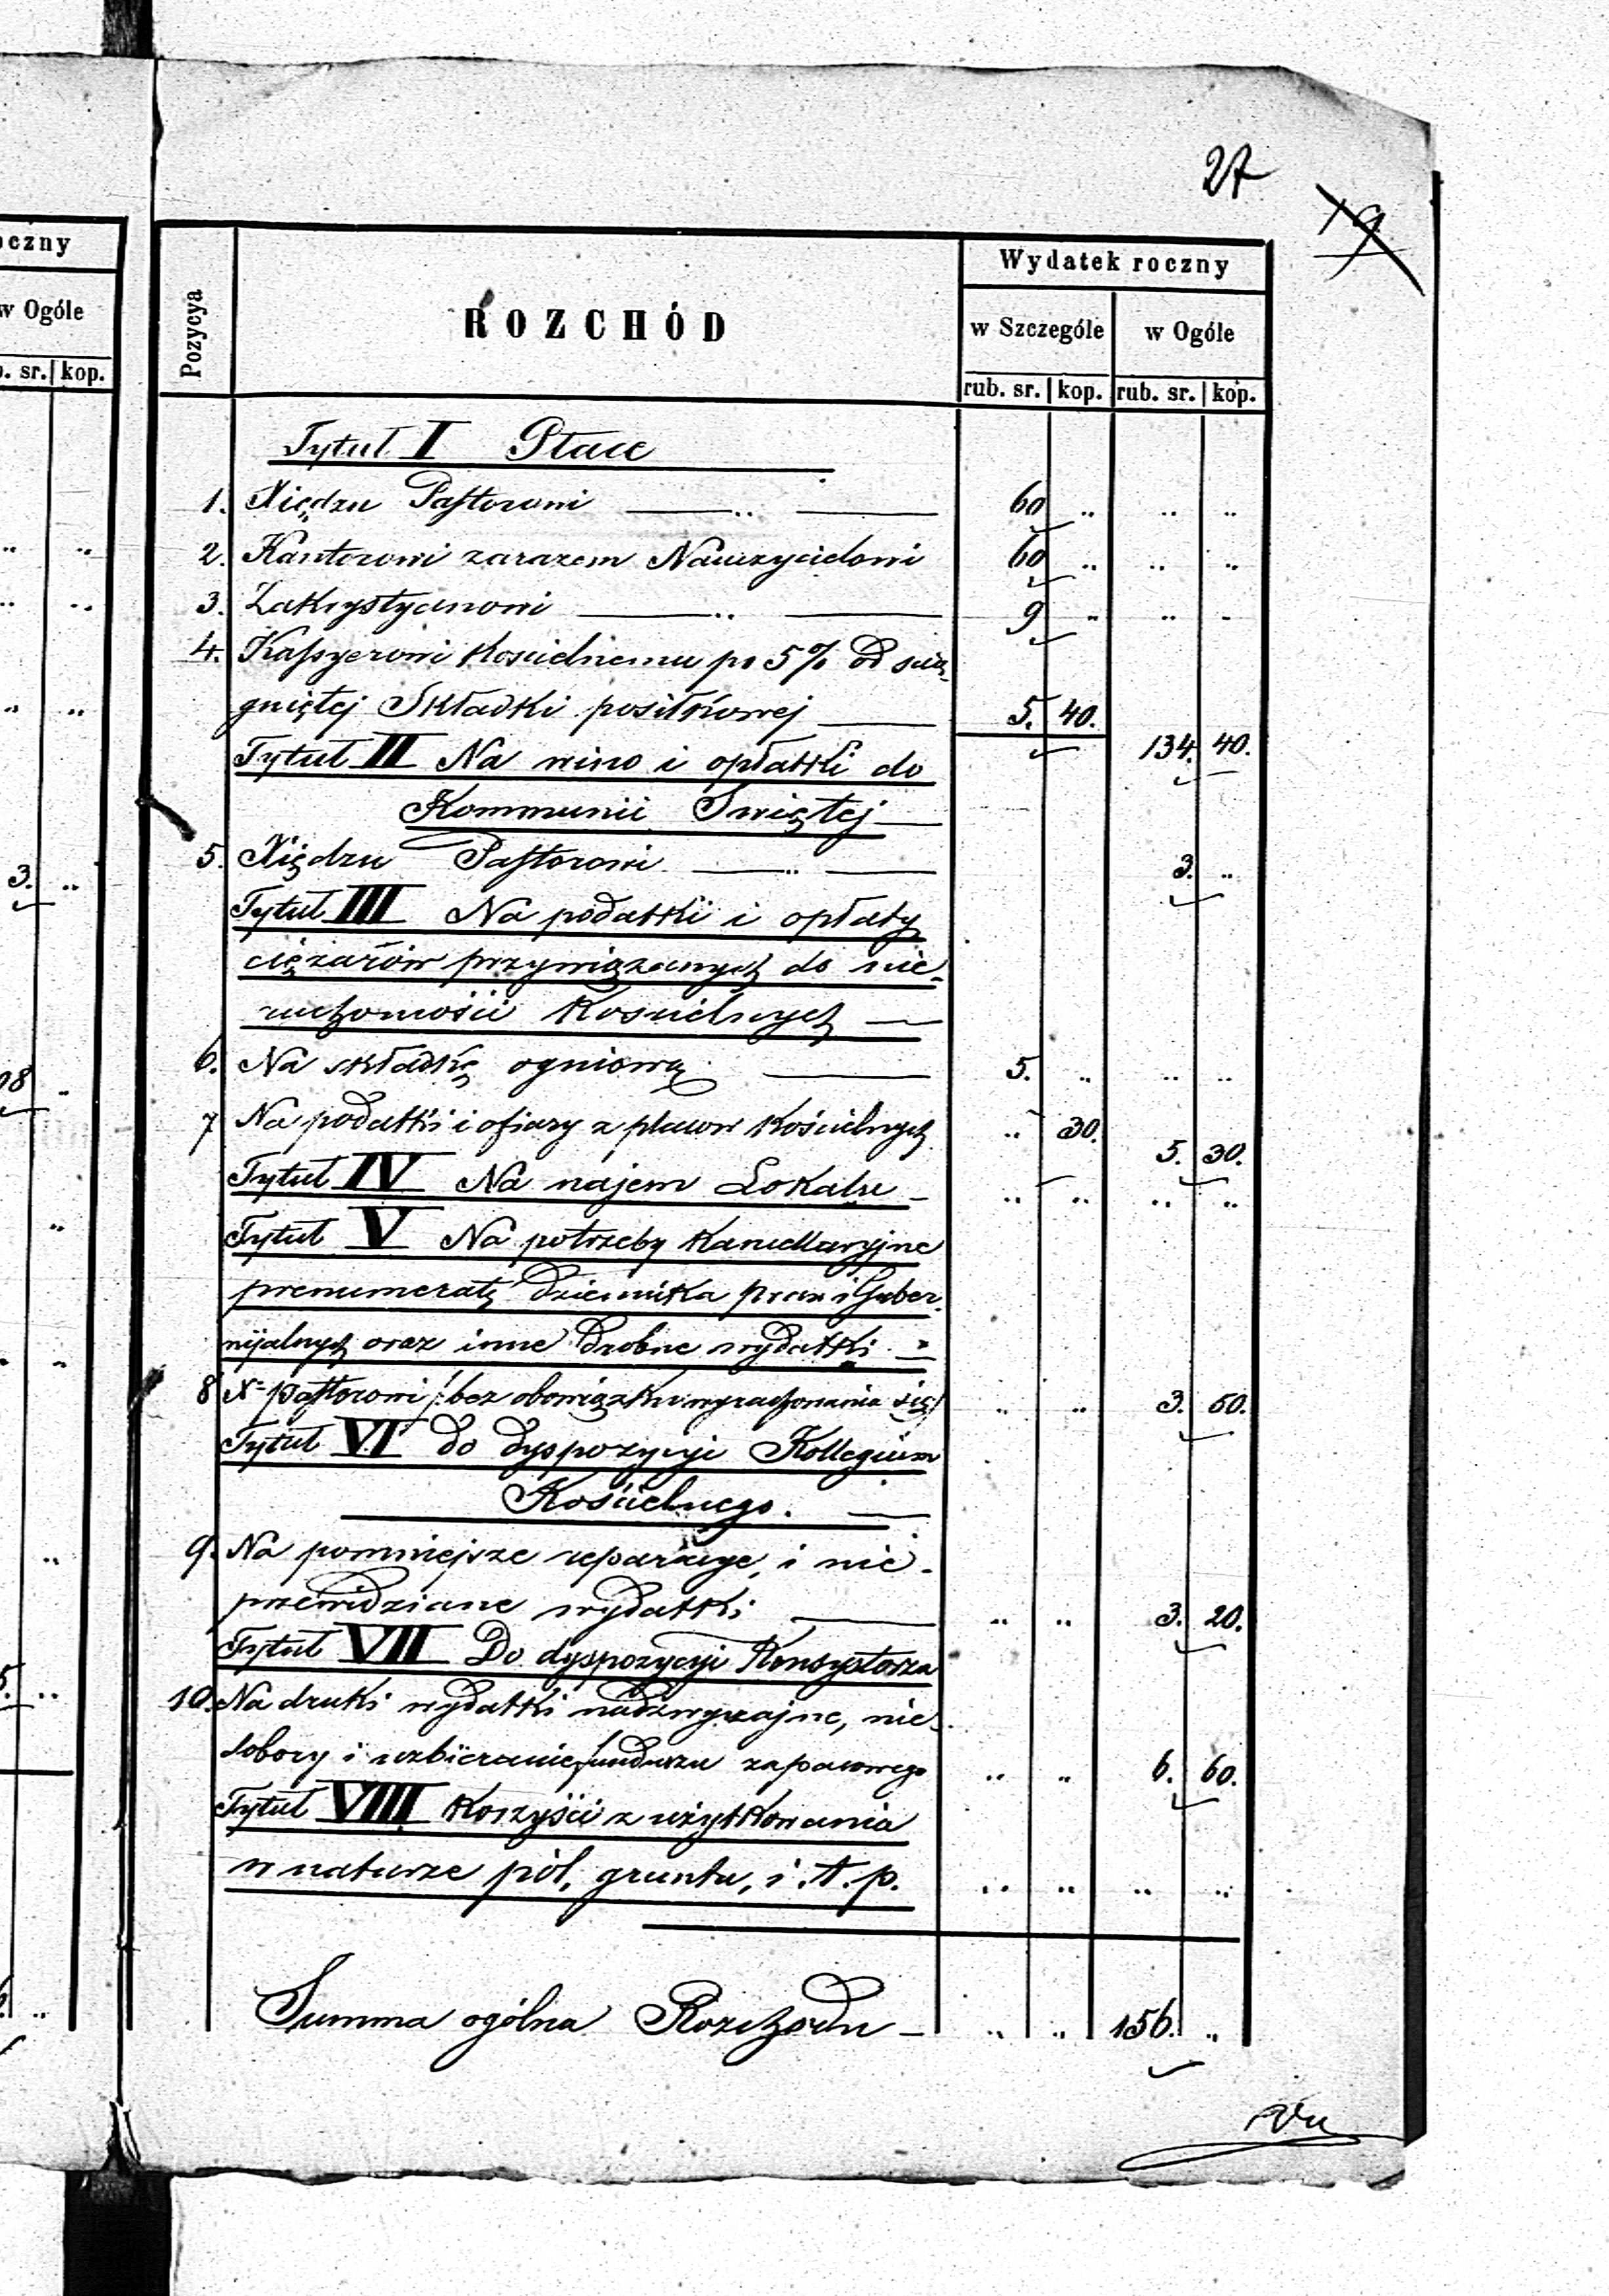 27
19
oczny
w Ogóle
b. sr. kop.
3. ..
98 ..
5. ..
Pozycya
ROZCHÓD
Wydatek roczny
w Szczególe w Ogóle
rub. sr. kop. rub. sr. kop.
Tytuł I Płace
1. Xiędzu Pastorowi — .. — 60 .. .. ..
2. Kantorowi zarazem Nauczycielowi 60 .. .. ..
3. Zakrystyanowi — .. — 9 .. .. ..
4. Kassyerowi Kościelnemu po 5% od ścią-
gniętej Składki posiłkowej — 5. 40.
134. 40.
Tytuł II Na wino i opłatki do
Kommunii Świętej —
5. Xiędzu Pastorowi — .. — 3. ..
Tytuł III Na podatki i opłaty
ciężarów przywiązanych do nie-
ruchomości Kościelnych —
6. Na składkę ogniową — 5. .. .. ..
7 Na podatki i ofiary z placów Kościelnych .. 30.
5. 30.
Tytuł IV Na najem Lokalu — .. .. .. ..
Tytuł V Na potrzeby Kancellaryjne
prenumeratę dziennika praw i Guber-
nijalnych oraz inne drobne wydatki —
8 X= pastorowi /: bez obowiązku wyrachowania się :/ .. .. 3. 50.
Tytuł VI do dyspozycyi Kollegium
Kościelnego. —
9. Na pomniejsze reparacye, i nie-
przewidziane wydatki — .. .. 3. 20.
Tytuł VII Do dyspozycyi Konsystorza
10. Na druki wydatki nadzwyczajne, nie-
dobory i uzbieranie funduszu zapasowego .. .. 6. 60.
Tytuł VIII Korzyści z użytkowania
w naturze pól, gruntu, i. t. p. .. .. .. ..
Summa ogólna Rozchodu — .. .. 156. ..